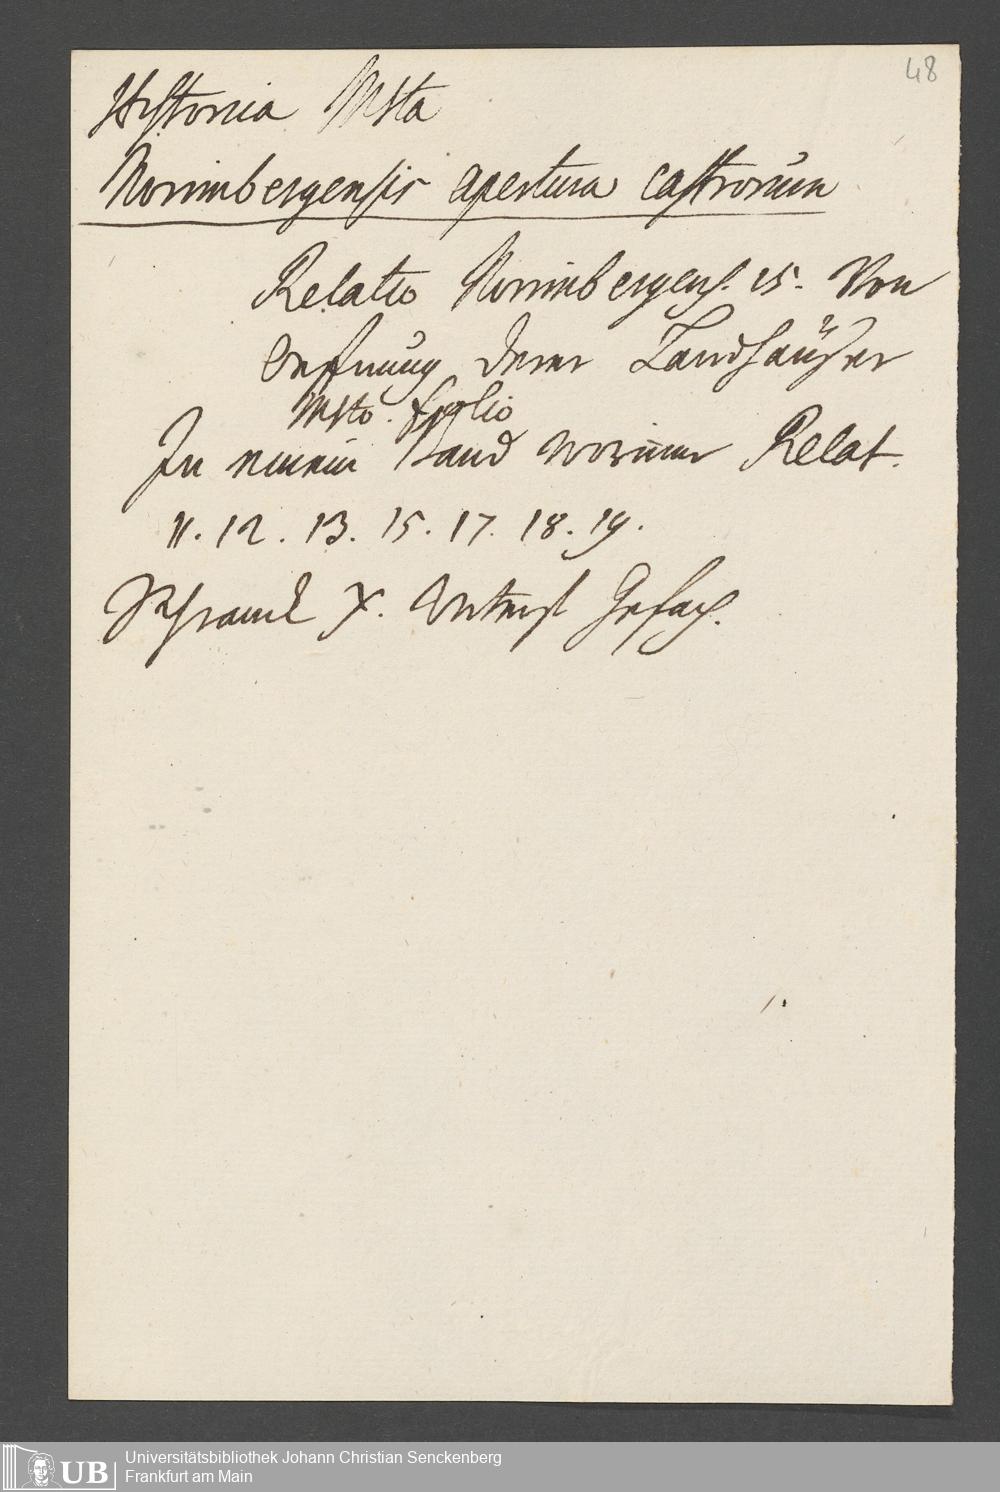 48
Historia Msta
Norimbergensis apertura castrorum
Relatio Norimbergens. 15. Von
Oeffnung derer Landhäußer
Msto. folio
In einem Band worinnen Relat.
11. 12. 13. 15. 17. 18. 19.
Schranck X. Unterst Gefach.
UB
Universitätsbibliothek Johann Christian Senckenberg
Frankfurt am Main